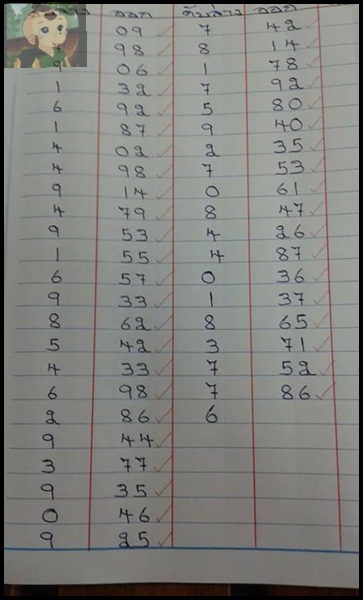 ออก ต้นล่าง ออก
09 7 42
98 8 14
9 06 1 78
1 32 7 92
6 92 5 80
1 87 9 40
4 02 2 35
4 98 7 53
9 14 0 61
4 79 8 47
9 53 4 26
1 55 4 87
6 57 0 36
9 33 1 37
8 62 8 65
5 42 3 71
4 33 7 52
6 98 7 86
2 86 6
9 44
3 77
9 35
0 46
9 25